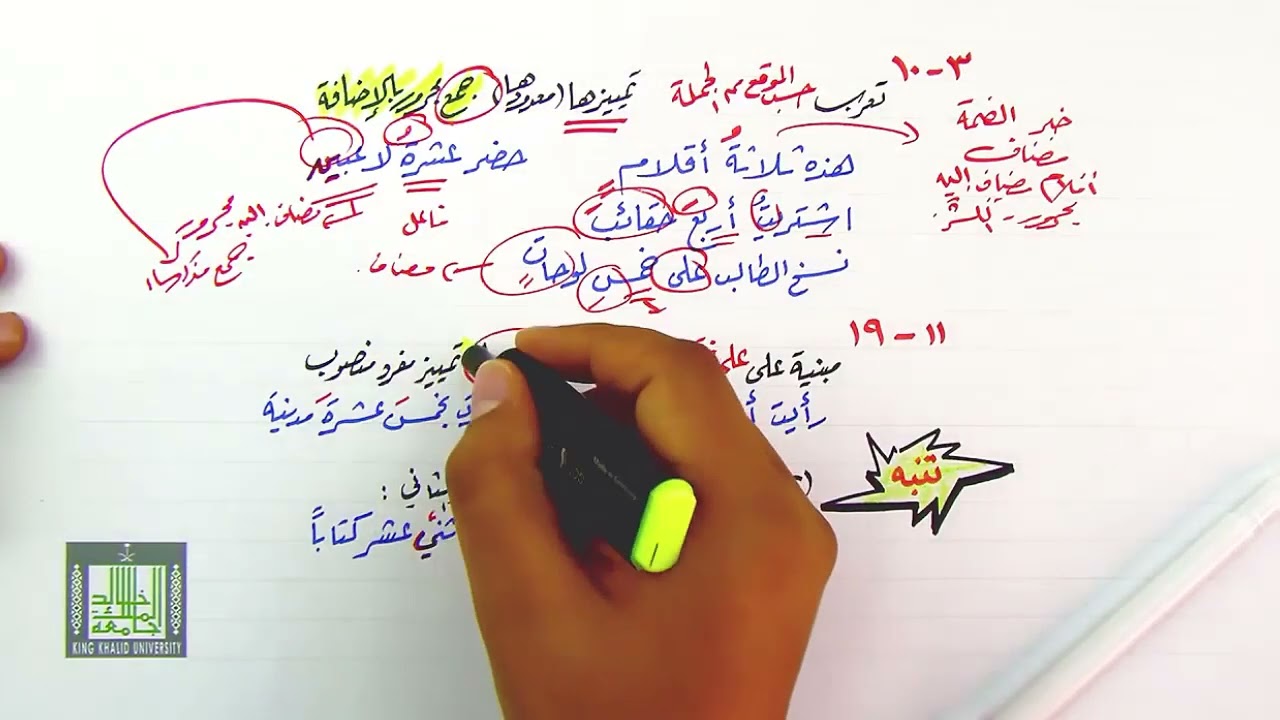 ٣ - ١٠
تعرب حسب الموقع من الجملة تمييزها (معدودها) جمع مجرور بالإضافة
هذه ثلاثةُ أقلامٍ
حضر عشرةُ لاعبين
خبر الضمة
مضاف
أقلام مضاف إليه
مجرور - الكسرة
اشتريتُ أربعَ حقائبَ
فاعل
مضاف إليه مجرور
جمع مذكر سالم
نسخ الطالب على خمسِ لوحاتٍ
مضاف
١١ - ١٩
مبنية على تمييز مفرد منصوب
رأيت بخمسَ عشرةَ مدينة
تنبه
الثاني :
عشر كتاباً
جامعة الملك خالد
KING KHALID UNIVERSITY